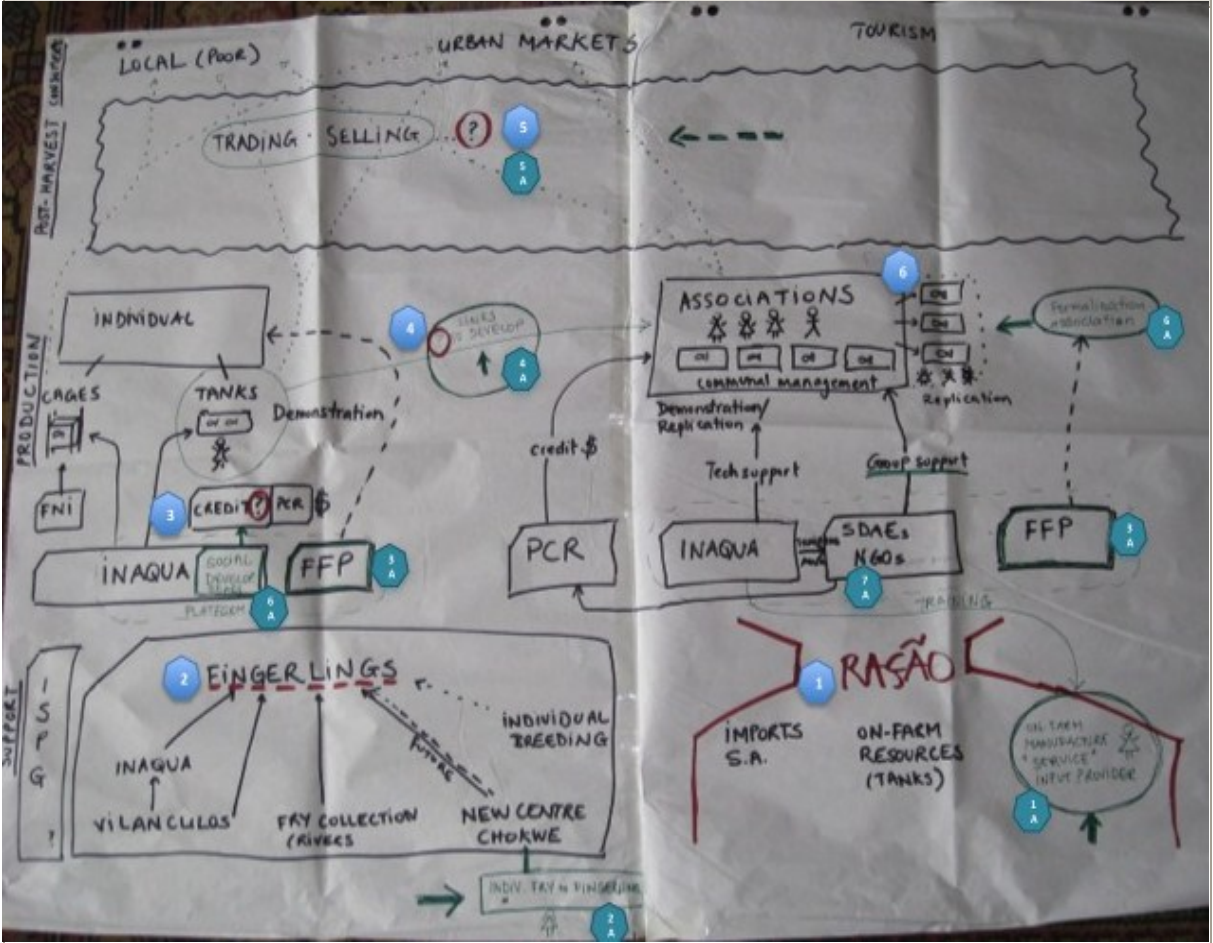 LOCAL (POOR)
URBAN MARKETS
TOURISM
POST-HARVEST
TRADING · SELLING
?
5
5
A
PRODUCTION
INDIVIDUAL
CAGES
TANKS
Demonstration
FNI
3
CREDIT ?
PCR $
INAQUA
SOCIAL
DEVELOP
PLATFORM
6
A
FFP
3
A
4
DEVELOP
4
A
ASSOCIATIONS
6
communal management
Replication
Formalisation
association
6
A
Demonstration/
Replication
credit $
Tech support
Group support
PCR
INAQUA
SDAEs
NGOs
7
A
FFP
3
A
TRAINING
SUPPORT
I
S
P
G
?
2
FINGERLINGS
INDIVIDUAL
BREEDING
FUTURE
INAQUA
VILANCULOS
FRY COLLECTION
(RIVERS
NEW CENTRE
CHOKWE
INDIV. FRY
2
A
1
RASÃO
IMPORTS
S.A.
ON-FARM
RESOURCES
(TANKS)
ON-FARM
MANUFACTURE
"SERVICE"
INPUT PROVIDER
1
A